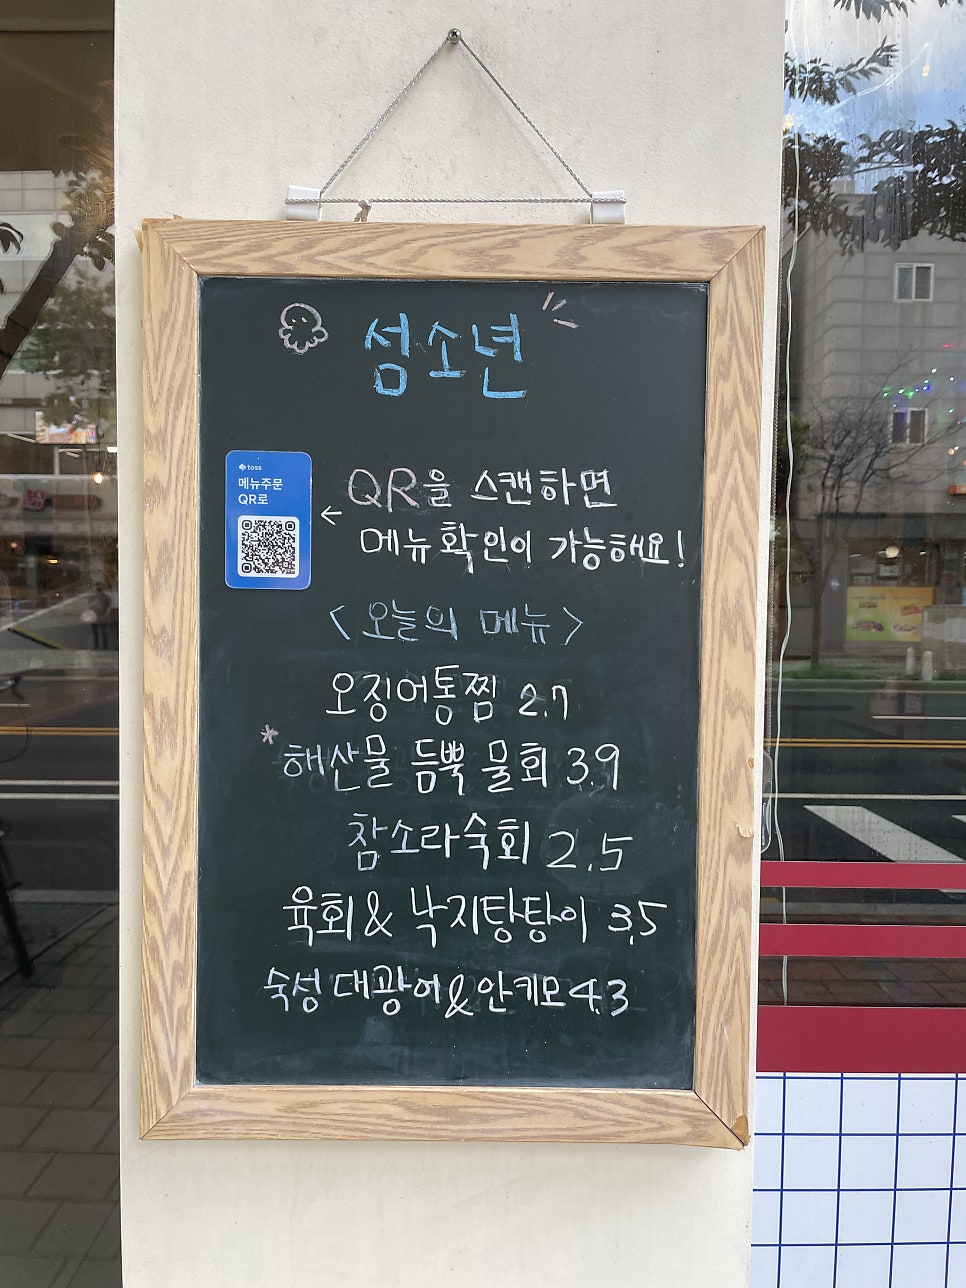 섬소년
toss
메뉴주문
QR로
← QR을 스캔하면
메뉴확인이 가능해요!
<오늘의 메뉴>
오징어통찜 2.7
*해산물 듬뿍 물회 3.9
참소라숙회 2.5
육회& 낙지탕탕이 3.5
숙성 대광어&안키모 4.3